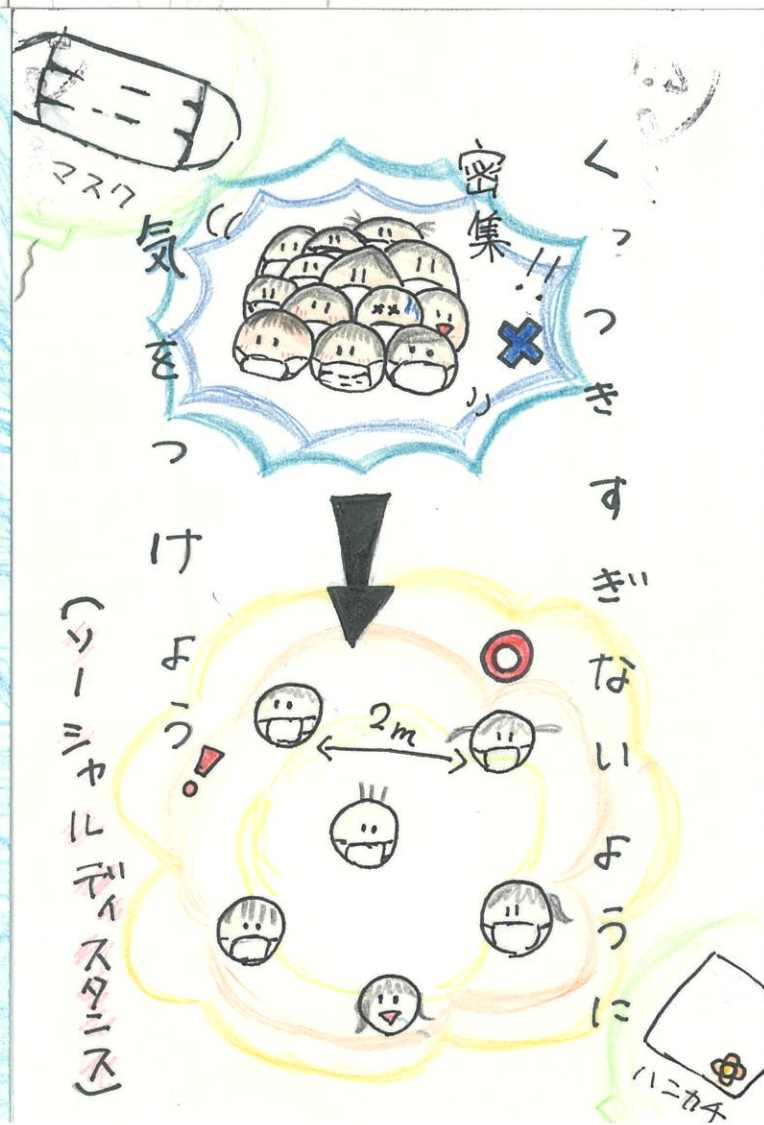 くっつきすぎないように
気をつけよう!
(ソーシャルディスタンス)
密集!!
マスク
2m
ハンカチ